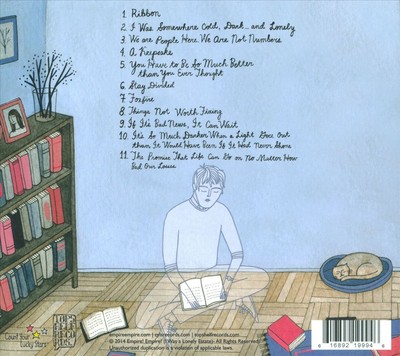 1 Ribbon
2 I Was Somewhere Cold, Dark...and Lonely
3 We are People Here. We Are Not Numbers
4 A Keepsake
5 You Have to Be So Much Better
than You Ever Thought
6 Stay Divided
7 Foxfire
8 Things Not Worth Fixing
9 If It's Bad News, It Can Wait
10 It's So Much Darker When a Light Goes Out
than It Would Have Been If It Had Never Shone
11 The Promise That Life Can Go on No Matter How
Bad Our Losses
Count Your
Lucky Stars
TOPS
HELF
RECO
RDS
empireempire.com | cylsrecords.com | topshelfrecords.com
© 2014 Empire! Empire! (I Was a Lonely Estate). All Rights Reserved.
Unauthorized duplication is a violation of applicable laws.
6 16892 19994 6